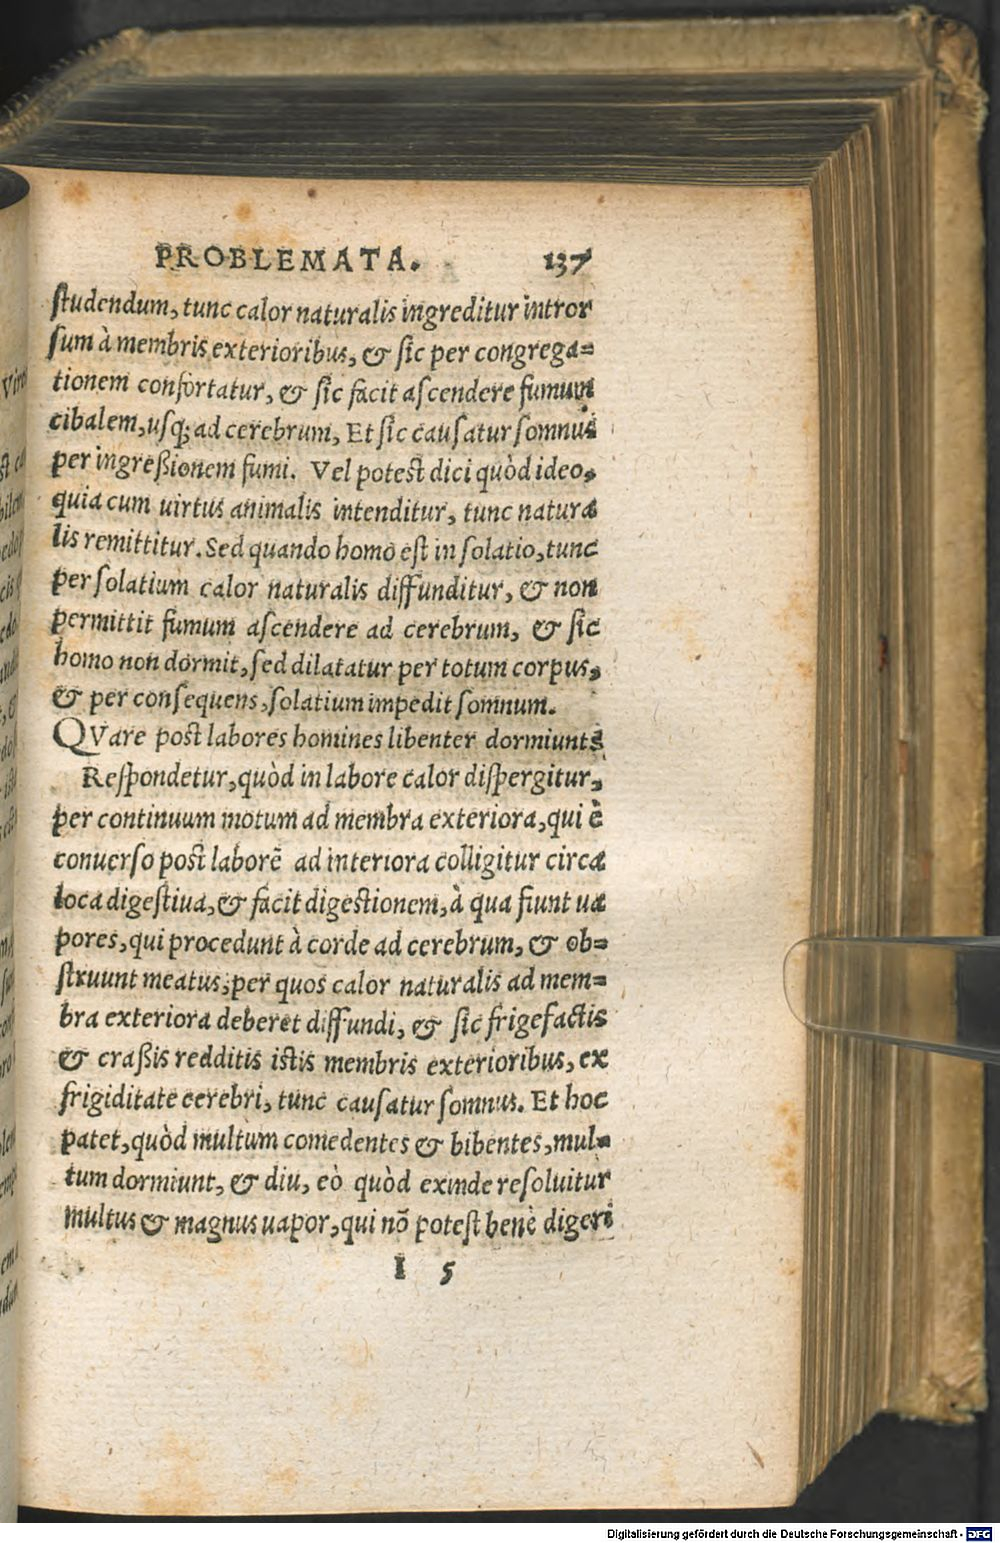 PROBLEMATA. 137
ſtudendum, tunc calor naturalis ingreditur intror
ſum à membris exterioribus, & ſic per congrega=
tionem confortatur, & ſic facit aſcendere fumum
cibalem, uſq; ad cerebrum, Et ſic cauſatur ſomnus
per ingreßionem fumi. Vel poteſt dici quòd ideo,
quia cum uirtus animalis intenditur, tunc natura
lis remittitur. Sed quando homo eſt in ſolatio, tunc
per ſolatium calor naturalis diffunditur, & non
permittit fumum aſcendere ad cerebrum, & ſic
homo non dormit, ſed dilatatur per totum corpus,
& per conſequens, ſolatium impedit ſomnum.
QVare poſt labores homines libenter dormiunt?
Reſpondetur, quòd in labore calor diſpergitur,
per continuum motum ad membra exteriora, qui è
conuerſo poſt laborē ad interiora colligitur circa
loca digeſtiua, & facit digeſtionem, à qua fiunt ua
pores, qui procedunt à corde ad cerebrum, & ob=
ſtruunt meatus, per quos calor naturalis ad mem=
bra exteriora deberet diffundi, & ſic frigefactis
& craßis redditis iſtis membris exterioribus, ex
frigiditate cerebri, tunc cauſatur ſomnus. Et hoc
patet, quòd multum comedentes & bibentes, mul=
tum dormiunt, & diu, eò quòd exinde reſoluitur
multus & magnus uapor, qui nō poteſt benè digeri
I 5
Digitalisierung gefördert durch die Deutsche Forschungsgemeinschaft - DFG